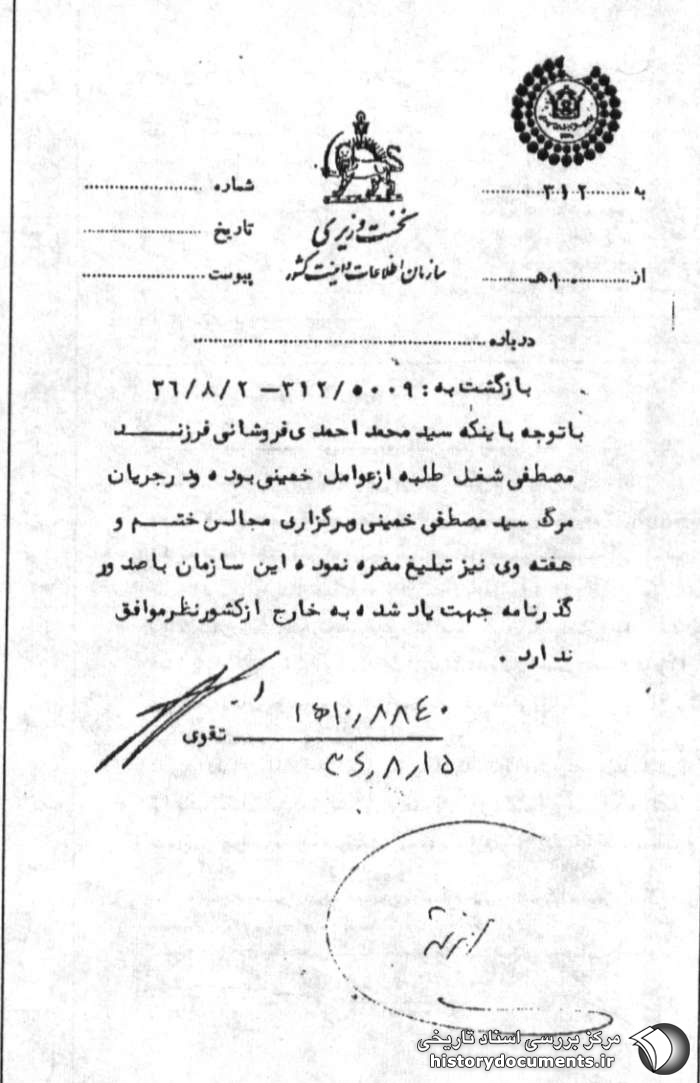 به ۳۱۲
شماره
نخست وزیری
تاریخ
سازمان اطلاعات و امنیت کشور
از ۱۰ هـ
پیوست
درباره
بازگشت به: ۳۱۲/۵۰۰۹ — ۳۶/۸/۲
باتوجه باینکه سید محمد احمدی فروشانی فرزند
مصطفی شغل طلبه از عوامل خمینی بوده و در جریان
مرگ سید مصطفی خمینی و برگزاری مجالس ختم و
هفته وی نیز تبلیغ مضره نموده این سازمان با صدور
گذرنامه جهت یاد شده به خارج از کشور نظر موافق
ندارد.
تقوی
۳۶/۸/۱۵
مرکز بررسی اسناد تاریخی
historydocuments.ir